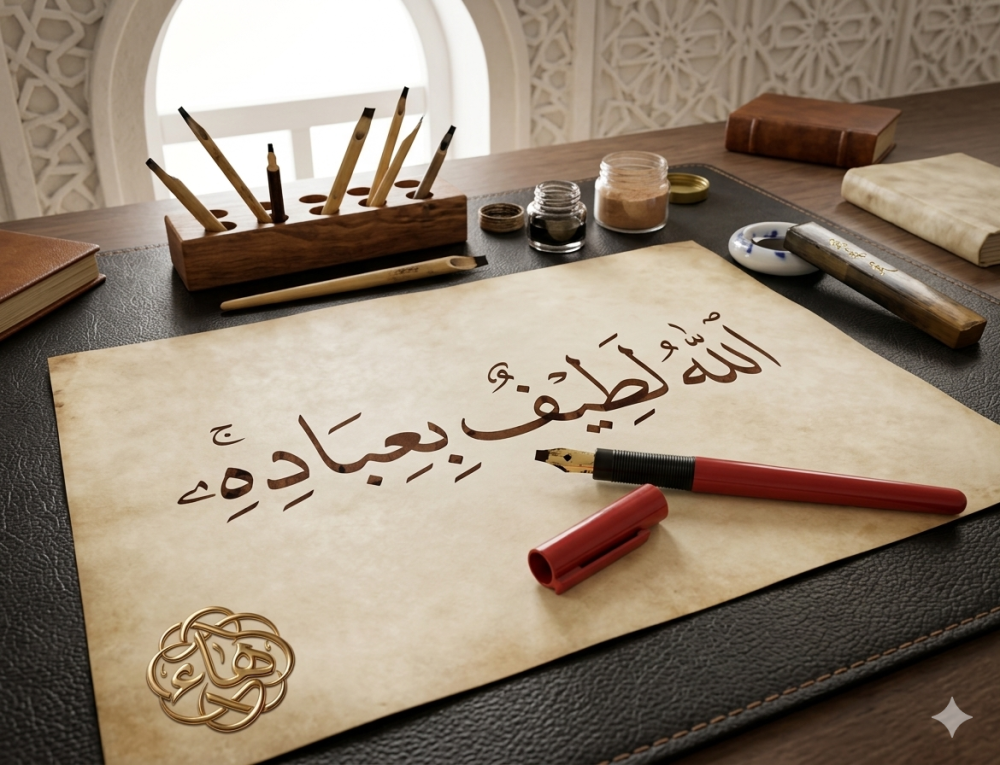 اللّٰهُ لَطِيْفٌ بِعِبَادِهِۦ ۚ